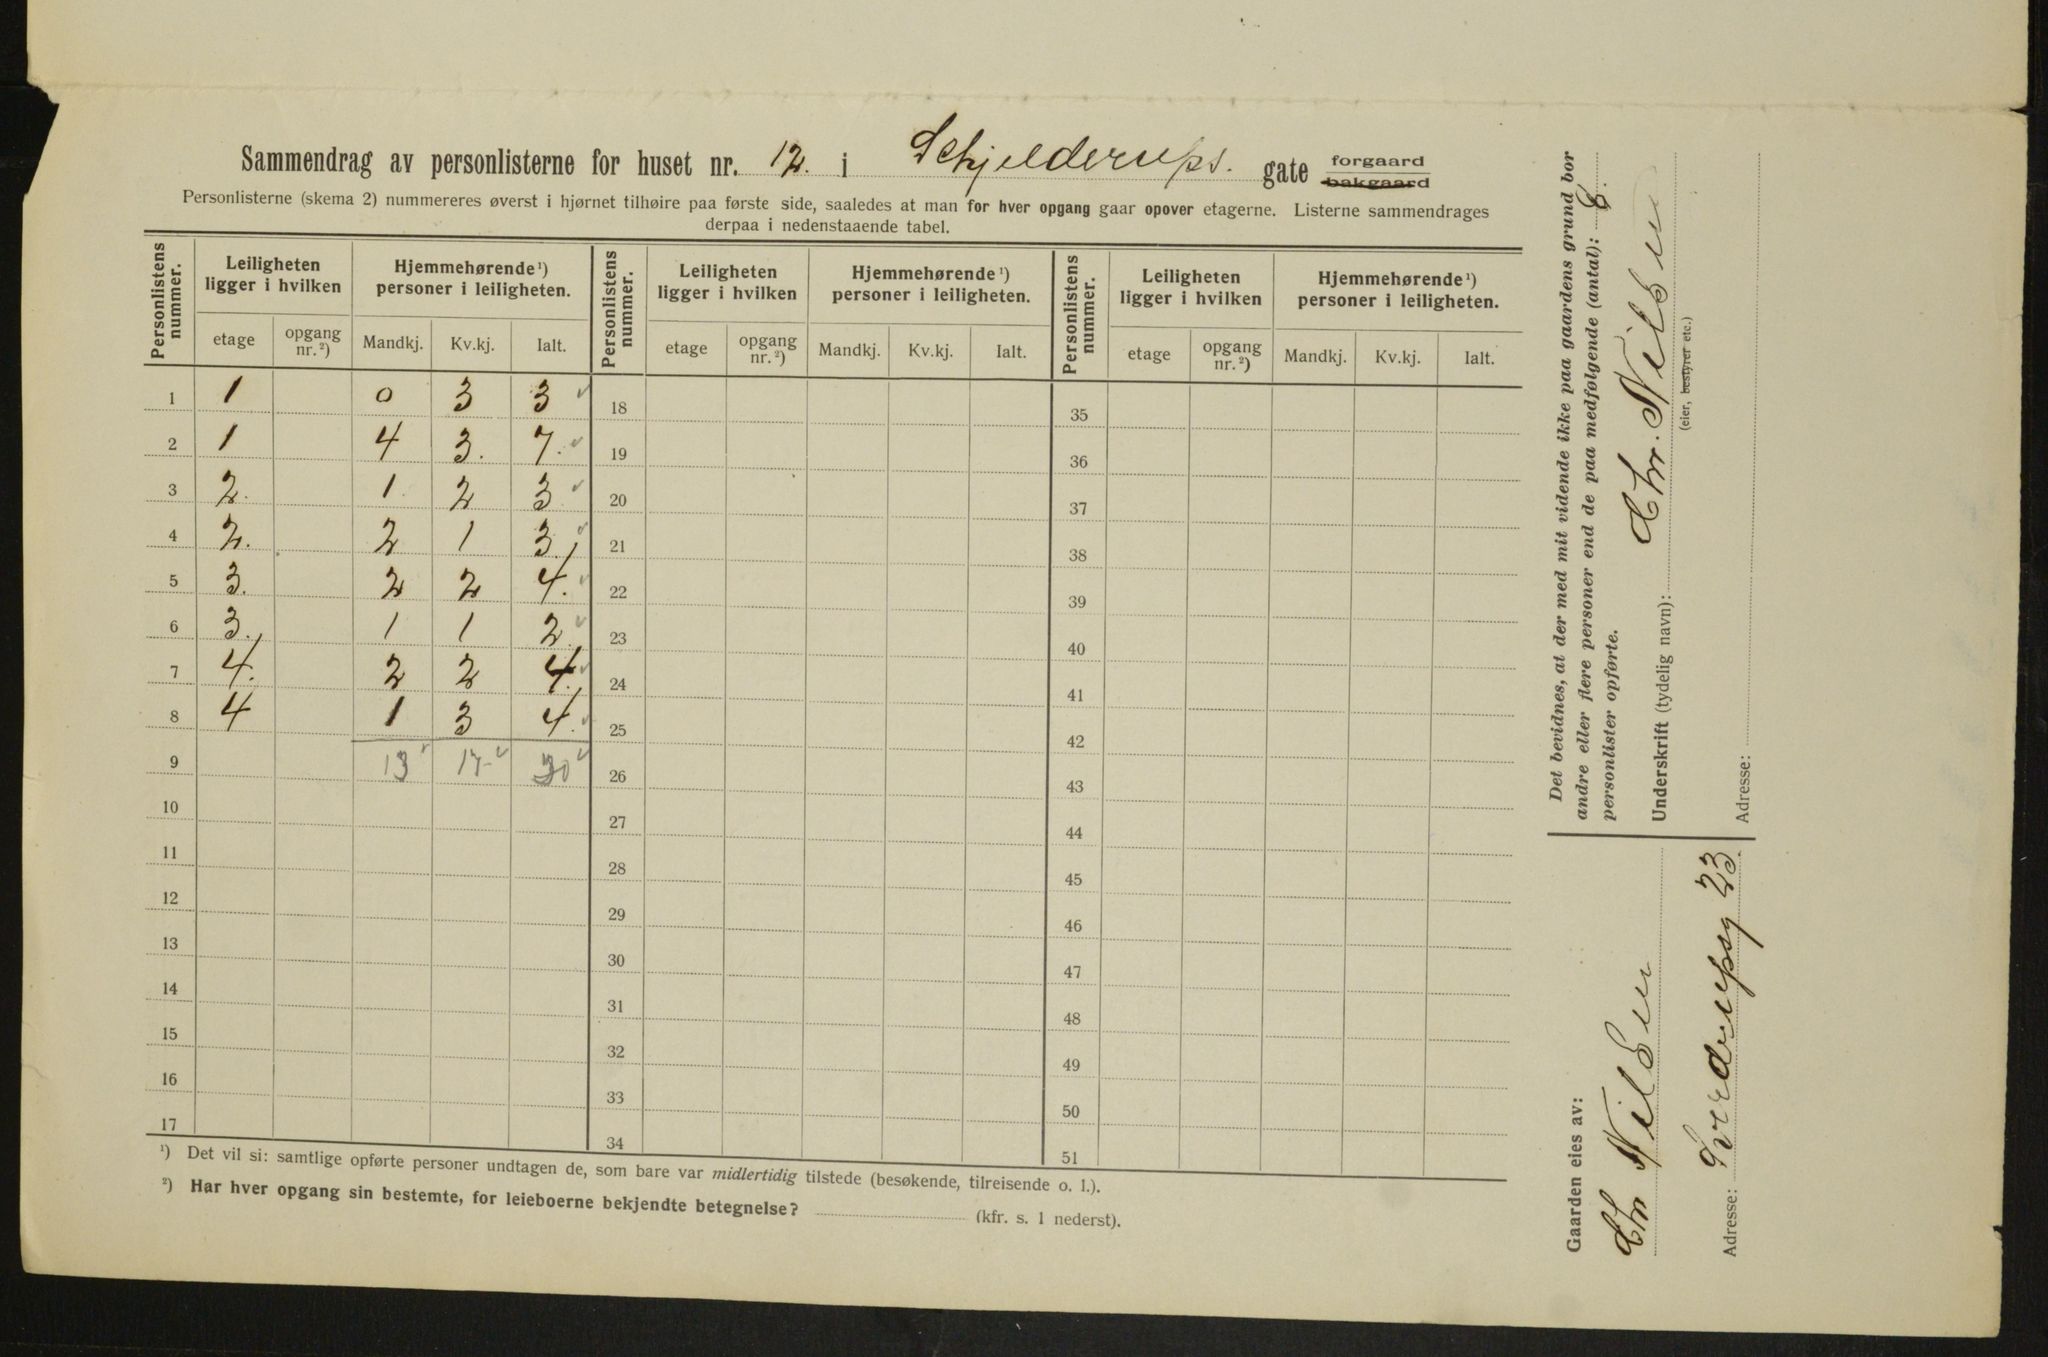 Sammendrag av personlisterne for huset nr. 12. i Schjelderups. gate forgaard bakgaard
Personlisterne (skema 2) nummereres øverst i hjørnet tilhøire paa første side, saaledes at man for hver opgang gaar opover etagerne. Listerne sammendrages
derpaa i nedenstaaende tabel.
Personlistens nummer. Leiligheten ligger i hvilken Hjemmehørende¹) personer i leiligheten. Personlistens nummer. Leiligheten ligger i hvilken Hjemmehørende¹) personer i leiligheten. Personlistens nummer. Leiligheten ligger i hvilken Hjemmehørende¹) personer i leiligheten.
etage opgang nr.²) Mandkj. Kv.kj. Ialt. etage opgang nr.²) Mandkj. Kv.kj. Ialt. etage opgang nr.²) Mandkj. Kv.kj. Ialt.
1 1 0 3 3 ✓ 18 35
2 1 4 3. 7. ✓ 19 36
3 2. 1. 2 3. ✓ 20 37
4 2. 2 1 3. ✓ 21 38
5 3. 2 2 4. ✓ 22 39
6 3. 1 1 2. ✓ 23 40
7 4. 2 2 4. ✓ 24 41
8 4 1 3 4. ✓ 25 42
9 13 ✓ 17 ✓ 30 ✓ 26 43
10 27 44
11 28 45
12 29 46
13 30 47
14 31 48
15 32 49
16 33 50
17 34 51
¹) Det vil si: samtlige opførte personer undtagen de, som bare var midlertidig tilstede (besøkende, tilreisende o. l.).
²) Har hver opgang sin bestemte, for leieboerne bekjendte betegnelse? (kfr. s. 1 nederst).
Det bevidnes, at der med mit vidende ikke paa gaardens grund bor
andre eller flere personer end de paa medfølgende (antal): 8.
personlister opførte.
Underskrift (tydelig navn): Chr. Nilsen
(eier, bestyrer etc.)
Adresse:
Gaarden eies av:
Chr Nilsen
Adresse: Sverdrupsg 23.